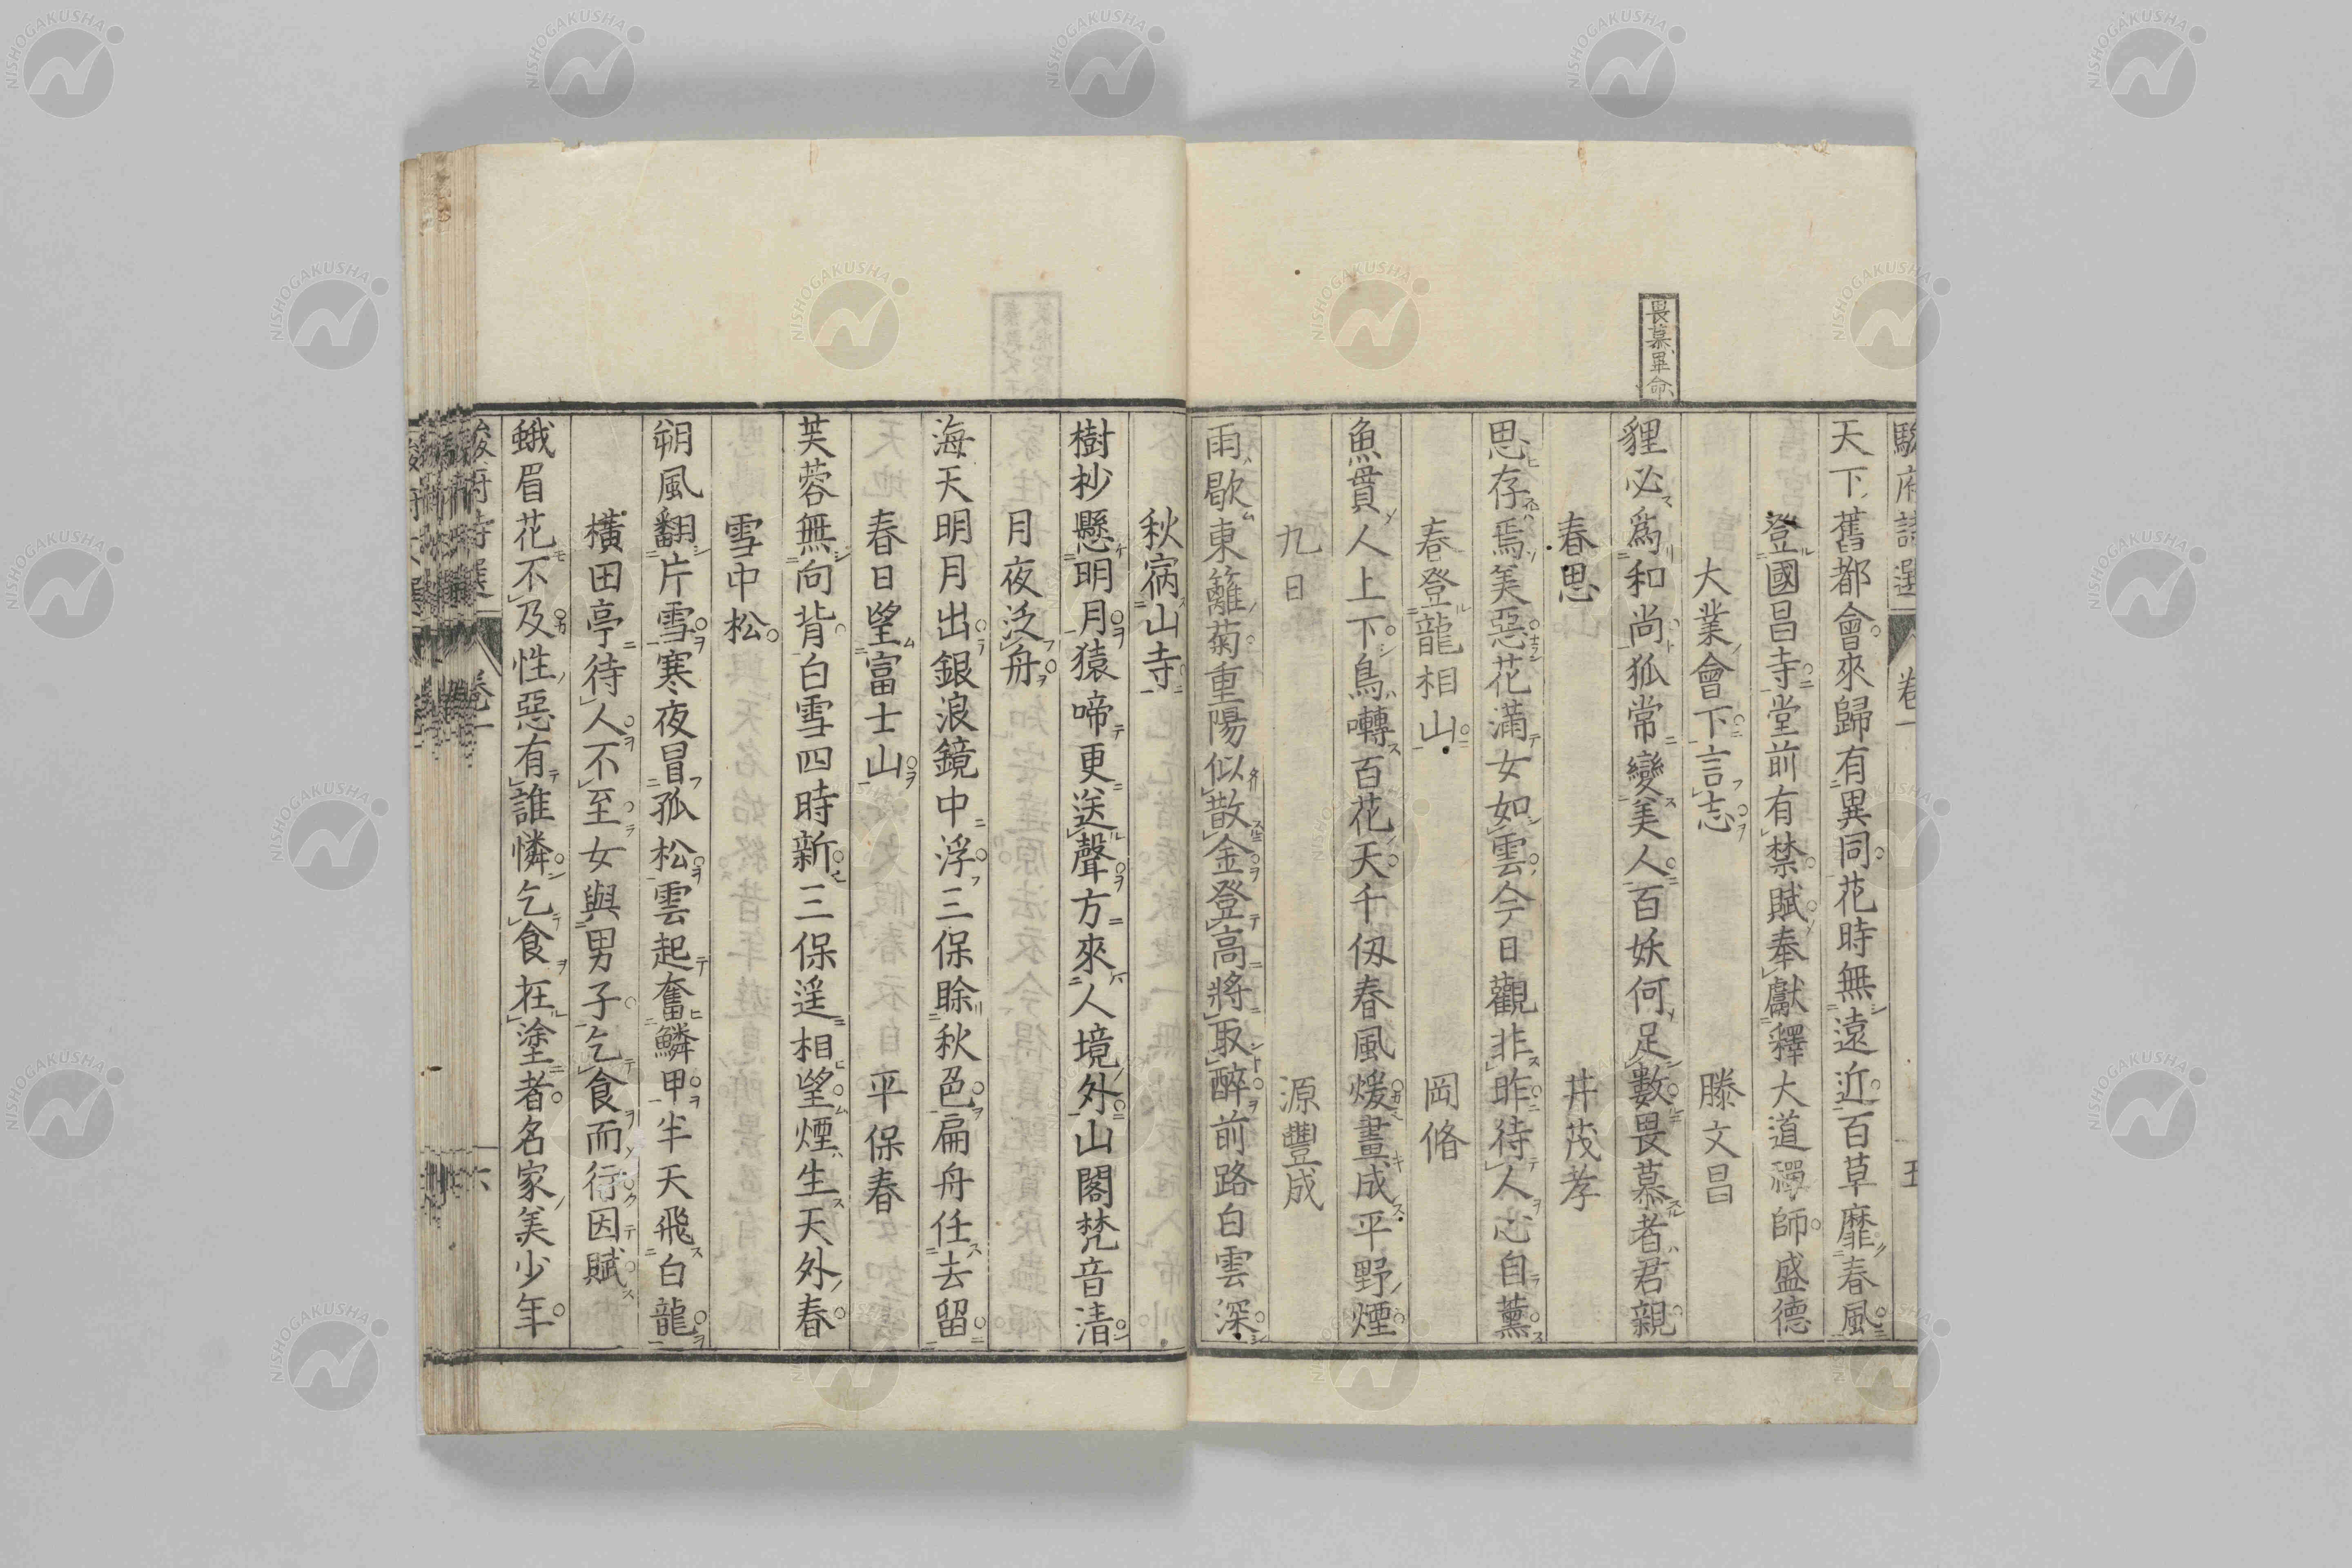 畏慕畢命
駿府詩選 卷一 五
天下舊都會來歸有異同花時無遠近百草靡春風
登國昌寺堂前有禁賦奉獻釋大道禪師盛德
大業會下言志 滕文昌
貍必爲和尚狐常變美人百妖何足數畏慕者君親
春思 井茂孝
思存焉美惡花滿女如雲今日觀非昨待人心自薰
春登龍相山 岡脩
魚貫人上下鳥囀百花天千仭春風煖畫成平野煙
九日 源豐成
雨歇東籬菊重陽似散金登高將取醉前路白雲深
秋宿山寺
樹杪懸明月猿啼更送聲方來人境外山閣梵音淸
月夜泛舟
海天明月出銀浪鏡中浮三保賖秋色扁舟任去留
春日望富士山 平保春
芙蓉無向背白雪四時新三保遥相望煙生天外春
雪中松
朔風翻片雪寒夜冒孤松雲起奮鱗甲半天飛白龍
橫田亭待人不至女與男子乞食而行因賦
蛾眉花不及性惡有誰憐乞食在塗者名家美少年
駿府詩選 卷一 六
NISHOGAKUSHA